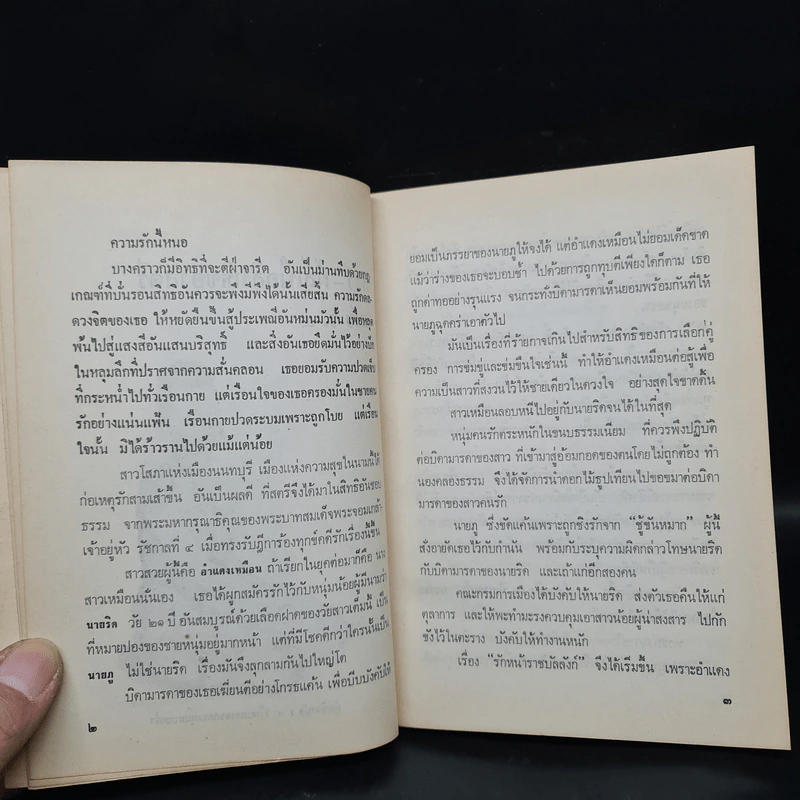 ความรักนี้หนอ
บางคราวก็มีอิทธิที่จะตีฝ่าจารีต อันเป็นม่านทึบด้วยกฎ
เกณฑ์ที่บั่นรอนสิทธิอันควรจะพึงมีพึงได้นั้นเสียสิ้น ความรักดล
ดวงจิตของเธอ ให้หยัดยืนขึ้นสู้ประเพณีอันหม่นมัวนั้น เพื่อหลุด
พ้นไปสู่แสงสีอันแสนบริสุทธิ์ และสิ่งอันเธอยึดมั่นไว้อย่างลึก
ในหลุมลึกที่ปราศจากความสั่นคลอน เธอยอมรับความปวดเจ็บ
ที่กระหน่ำไปทั่วเรือนกาย แต่เรือนใจของเธอครองมั่นในชายคน
รักอย่างแน่นแฟ้น เรือนกายปวดระบมเพราะถูกโบย แต่เรือน
ใจนั้น มิได้ร้าวรานไปด้วยแม้แต่น้อย
สาวโสภาแห่งเมืองนนทบุรี เมืองแห่งความสุขในนามนี้ได้
ก่อเหตุรักสามเส้าขึ้น อันเป็นผลดี ที่สตรีจึงได้มาในสิทธิอันชอบ
ธรรม จากพระมหากรุณาธิคุณของพระบาทสมเด็จพระจอมเกล้า
เจ้าอยู่หัว รัชกาลที่ ๔ เมื่อทรงรับฎีการ้องทุกข์คดีรักเรื่องนี้ขึ้น
สาวสวยผู้นี้คือ อำแดงเหมือน ถ้าเรียกในยุคต่อมาก็คือ นาง
สาวเหมือนนั่นเอง เธอได้ผูกสมัครรักไว้กับหนุ่มน้อยผู้มีนามว่า
นายริด วัย ๒๑ ปี อันสมบูรณ์ด้วยเลือดฝาดของวัยสาวเต็มนี้ เป็น
ที่หมายปองของชายหนุ่มอยู่มากหน้า แต่ที่มีโชคดีกว่าใครนั้นเป็น
นายภู ไม่ใช่นายริด เรื่องมันจึงลุกลามกันไปใหญ่โต
บิดามารดาของเธอเฆี่ยนตีอย่างโกรธแค้น เพื่อบีบบังคับให้
๒
ยอมเป็นภรรยาของนายภูให้จงได้ แต่อำแดงเหมือนไม่ยอมเด็ดขาด
แม้ว่าร่างของเธอจะบอบช้ำ ไปด้วยการถูกทุบตีเพียงใดก็ตาม เธอ
ถูกด่าทออย่างรุนแรง จนกระทั่งบิดามารดาเห็นยอมพร้อมกันที่ให้
นายภูฉุดคร่าเอาตัวไป
มันเป็นเรื่องที่ร้ายกาจเกินไปสำหรับสิทธิของการเลือกคู่
ครอง การข่มขู่และข่มขืนใจเช่นนี้ ทำให้อำแดงเหมือนต่อสู้เพื่อ
ความเป็นสาวที่สงวนไว้ให้ชายเดียวในดวงใจ อย่างสุดใจขาดดิ้น
สาวเหมือนลอบหนีไปอยู่กับนายริดจนได้ในที่สุด
หนุ่มคนรักตระหนักในขนบธรรมเนียม ที่ควรพึงปฏิบัติ
ต่อบิดามารดาของสาว ที่เข้ามาสู่อ้อมกอดของตนโดยไม่ถูกต้อง ทำ
นองคลองธรรม จึงได้จัดการนำดอกไม้ธูปเทียนไปขอขมาต่อบิดา
มารดาของสาวคนรัก
นายภู ซึ่งขัดแค้นเพราะถูกชิงรักจาก “ชู้ขันหมาก” ผู้นี้
สั่งอายัดเธอไว้กับกำนัน พร้อมกับระบุความผิดกล่าวโทษนายริด
กับบิดามารดาของนายริด และเถ้าแก่อีกสองคน
คณะกรมการเมืองได้บังคับให้นายริด ส่งตัวเธอคืนให้แก่
ตุลาการ และให้พะทำมะรงควบคุมเอาสาวน้อยผู้น่าสงสาร ไปกัก
ขังไว้ในตะราง บังคับให้ทำงานหนัก
เรื่อง “รักหน้าราชบัลลังก์” จึงได้เริ่มขึ้น เพราะอำแดง
๓